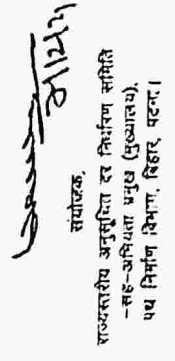 संयोजक,
राज्यस्तरीय अनुसूचित दर निर्धारण समिति
-सह-अभियंता प्रमुख (मुख्यालय),
पथ निर्माण विभाग, बिहार, पटना।